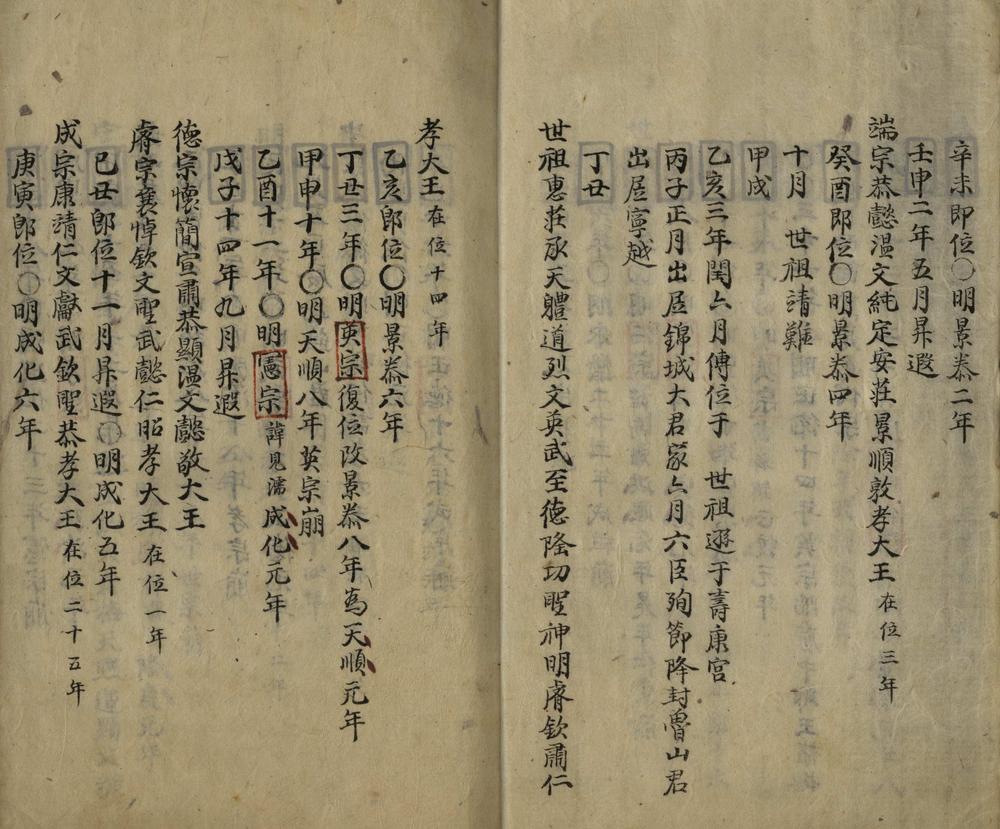 辛未即位〇明景泰二年
壬申二年五月昇遐
端宗恭懿温文純定安莊景順敦孝大王在位三年
癸酉即位〇明景泰四年
十月 世祖靖難
甲戌
乙亥三年閏六月傳位于 世祖遜于壽康宮
丙子正月出居錦城大君家六月六臣殉節降封魯山君
出居寧越
丁丑
世祖惠莊承天軆道烈文英武至德隆功聖神明睿欽肅仁
孝大王在位十四年
乙亥即位〇明景泰六年
丁丑三年〇明英宗復位改景泰八年為天順元年
甲申十年〇明天順八年英宗崩
乙酉十一年〇明憲宗諱見濡成化元年
戊子十四年九月昇遐
德宗懷簡宣肅恭顯温文懿敬大王
睿宗襄悼欽文聖武懿仁昭孝大王在位一年
己丑即位十一月昇遐〇明成化五年
成宗康靖仁文獻武欽聖恭孝大王在位二十五年
庚寅即位〇明成化六年